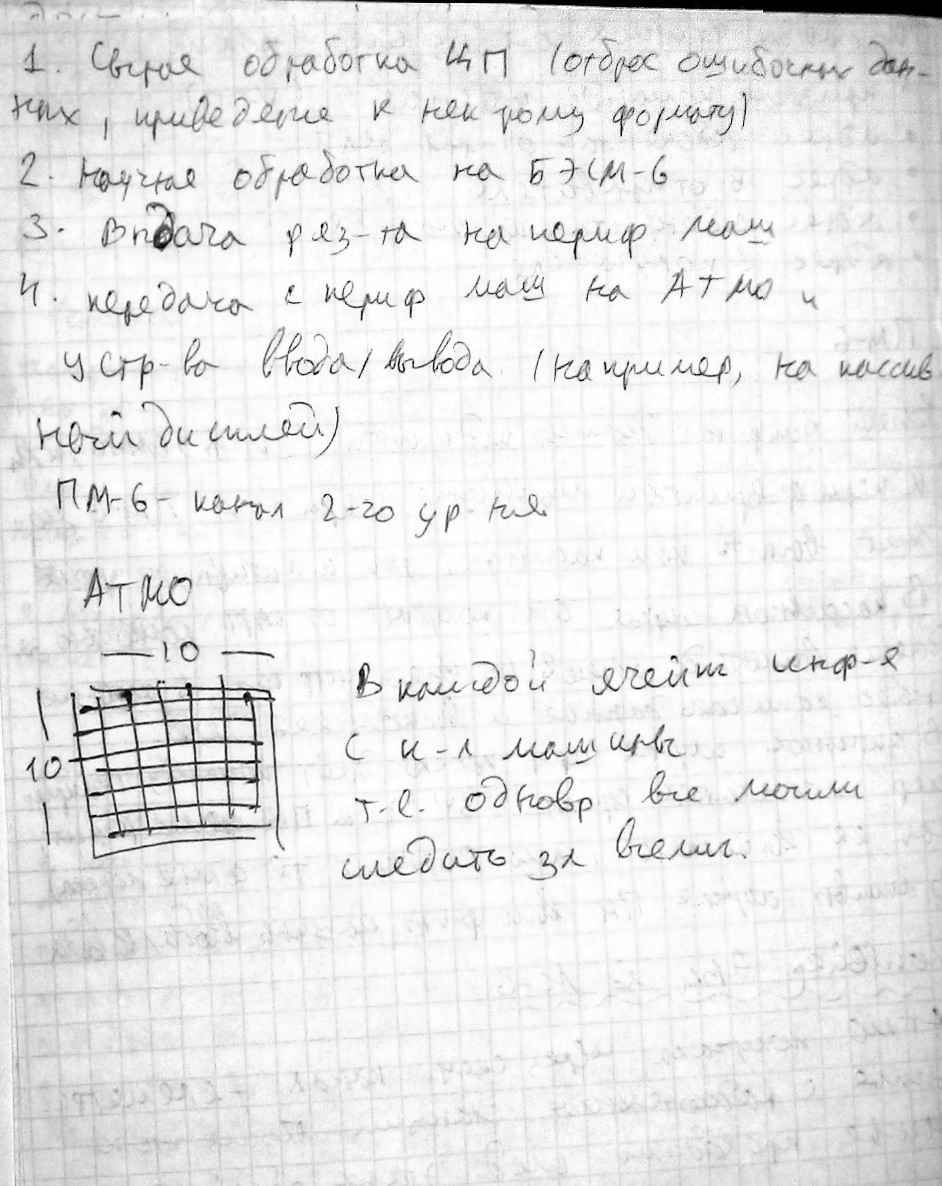 1. Сырая обработка ЦП (отброс ошибочных дан-
ных, приведение к нек рому формату)
2. Научная обработка на БЭСМ-6
3. Выдача рез-та на периф маш
4. передача с периф маш на АТМО и
устр-ва ввода/вывода (например, на пассив
ной дисплей)
ПМ-6 - канал 2-го ур ня.
АТМО
10
10
В каждой ячейке инф-я
с к-л машины
т.е. одновр все могли
следить за всеми.